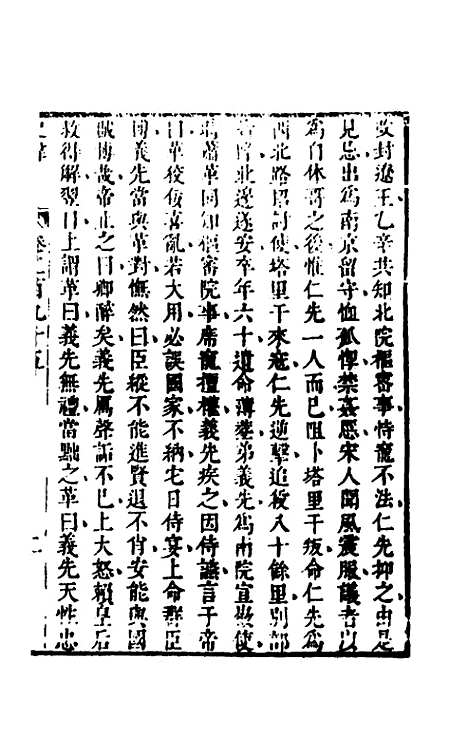 改封遼王乙辛共知北院樞密事恃寵不法仁先抑之由是
見忌出爲南京留守恤孤惸禁姦慝宋人聞風震服議者以
爲自休哥之後惟仁先一人而已阻卜塔里干叛命仁先爲
西北路招討使塔里干來寇仁先逆擊追殺八十餘里別部
北邊遂安卒年六十遺命薄葬弟義先爲南院宣徽使
蕭革同知樞密院事席寵擅權義先疾之因侍讌言于帝
曰革狡佞喜亂若大用必誤國家不納它日侍宴上命群臣
義先當與革對憮然曰臣縱不能進賢退不肖安能與國
賊博哉帝止之曰卿醉矣義先厲聲詬不已上大怒賴皇后
救得解翌日上謂革曰義先無禮當黜之革曰義先天性忠
史 卷二百九十五